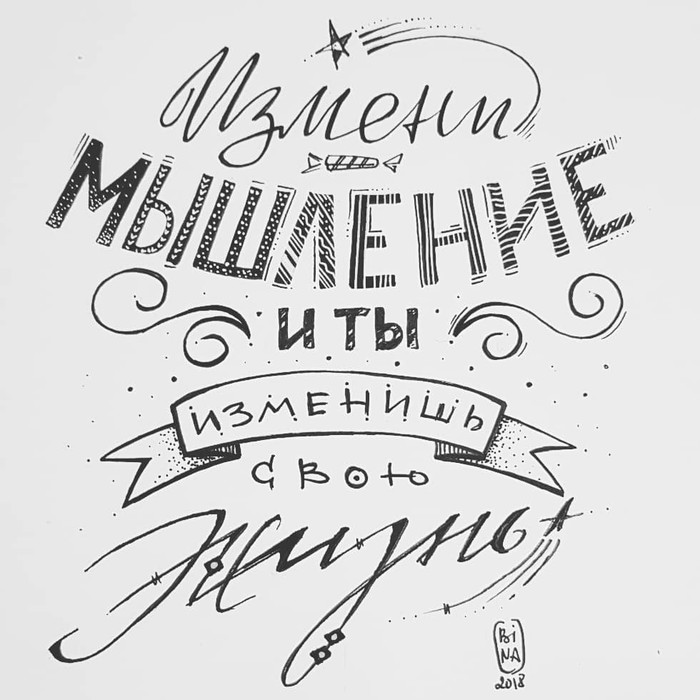 Измени
МЫШЛЕНИЕ
И ТЫ
ИЗМЕНИШЬ
СВОЮ
Жизнь
Bi
NA
2018